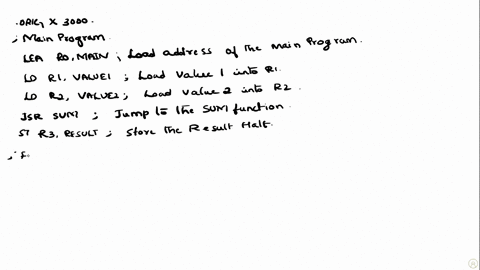 .ORIG X 3000.
; Main Program
LEA R0, MAIN ; Load address of the main Program.
LD R1, VALUE1 ; Load Value 1 into R1.
LD R2, VALUE2; Load Value 2 into R2
JSR SUM ; Jump to the SUM function.
ST R3, RESULT ; Store the Result Halt.
;